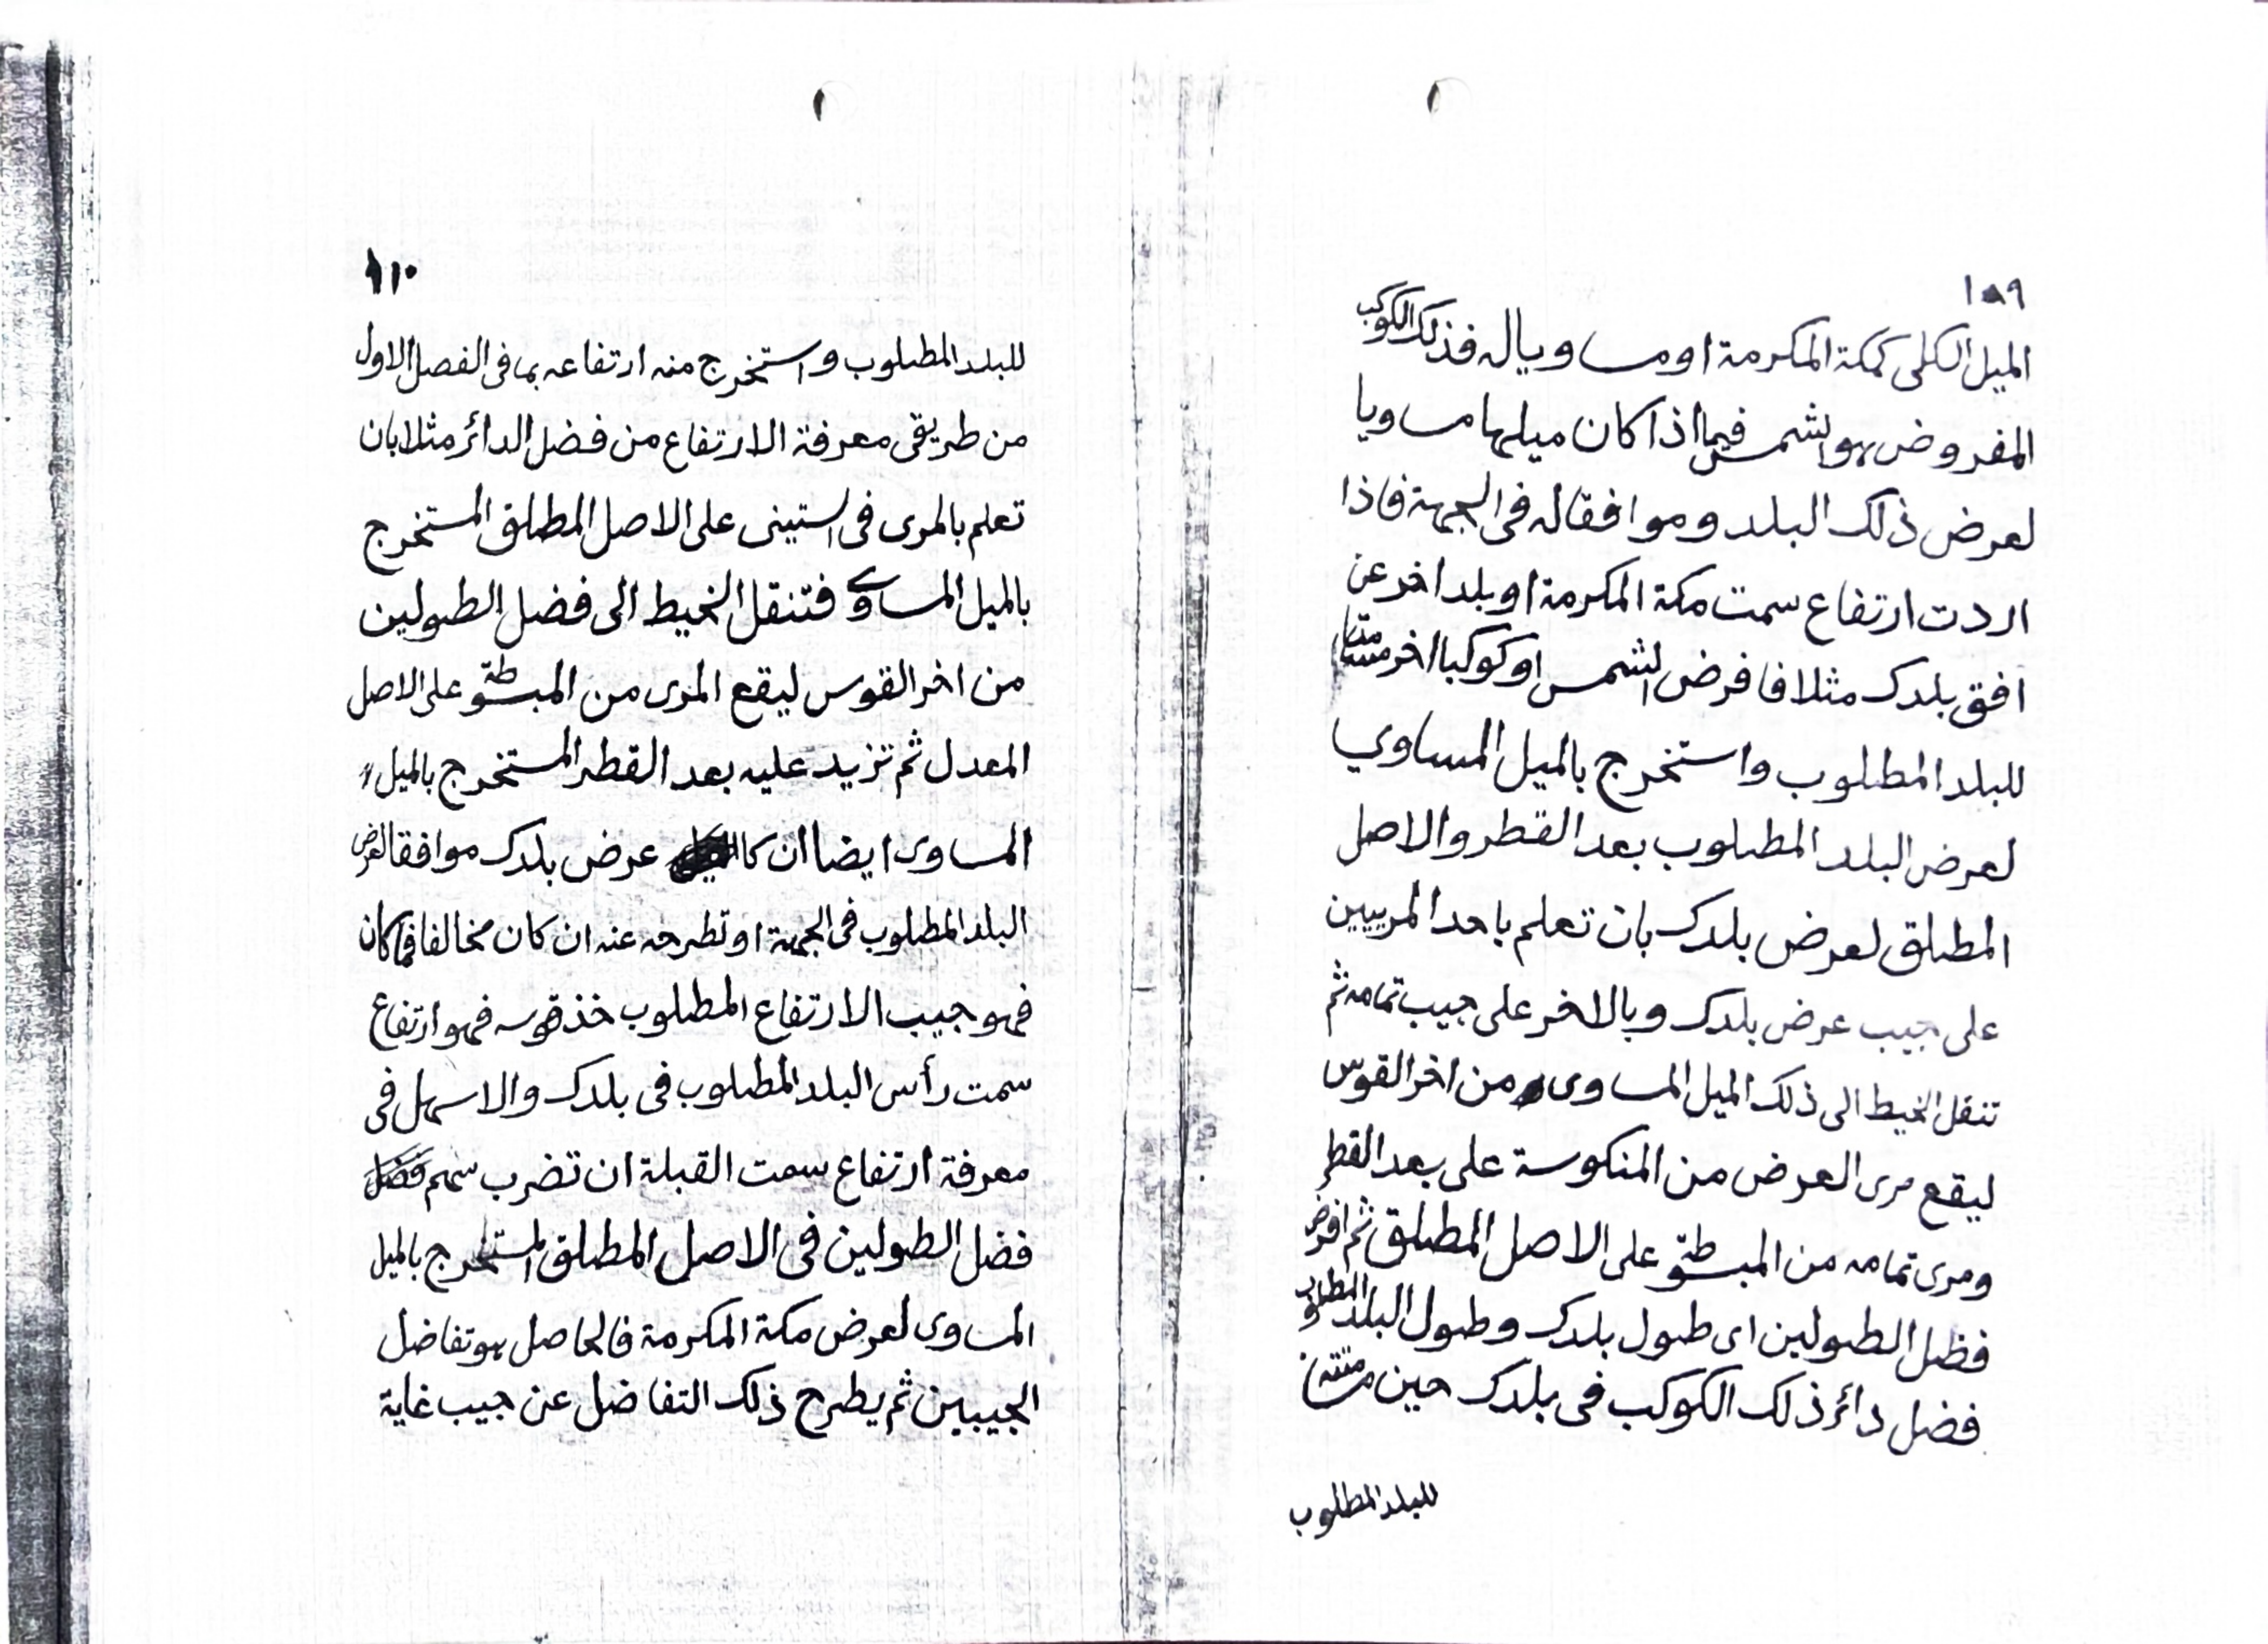 ١٨٩
الميل الكلى كمكة المكرمة او مساويا له فذلك الكوكب
المفروض هو الشمس فيما اذا كان ميلها مساويا
لعرض ذلك البلد وموافقا له فى الجهة فاذا
اردت ارتفاع سمت مكة المكرمة او بلد اخر عن
افق بلدك مثلا فافرض الشمس او كوكبا اخر مسامتا
للبلد المطلوب واستخرج بالميل المساوي
لعرض البلد المطلوب بعد القطر والاصل
المطلق لعرض بلدك بان تعلم باحد المريين
على جيب عرض بلدك وبالاخر على جيب تمامه ثم
تنقل الخيط الى ذلك الميل المساوى من اخر القوس
ليقع مرى العرض من المنكوسة على بعد القطر
ومرى تمامه من المبسوطة على الاصل المطلق ثم افرض
فظل الطولين اى طول بلدك وطول البلد المطلوب
فضل دائر ذلك الكوكب فى بلدك حين مسامتته
للبلد المطلوب
١١٠
للبلد المطلوب واستخرج منه ارتفاعه بما فى الفصل الاول
من طريقى معرفة الارتفاع من فضل الدائر مثلا بان
تعلم بالمرى فى الستينى على الاصل المطلق المستخرج
بالميل المساوى فتنقل الخيط الى فضل الطولين
من اخر القوس ليقع المرى من المبسوطة على الاصل
المعدل ثم تزيد عليه بعد القطر المستخرج بالميل
المساوى ايضا ان كان عرض بلدك موافقا لعرض
البلد المطلوب فى الجهة او تطرحه عنه ان كان مخالفا فما كان
فهو جيب الارتفاع المطلوب خذ قوسه فهو ارتفاع
سمت رأس البلد المطلوب فى بلدك والاسهل فى
معرفة ارتفاع سمت القبلة ان تضرب سهم فضل
فضل الطولين فى الاصل المطلق المستخرج بالميل
المساوى لعرض مكة المكرمة فالحاصل هو تفاضل
الجيبين ثم يطرح ذلك التفاضل عن جيب غاية